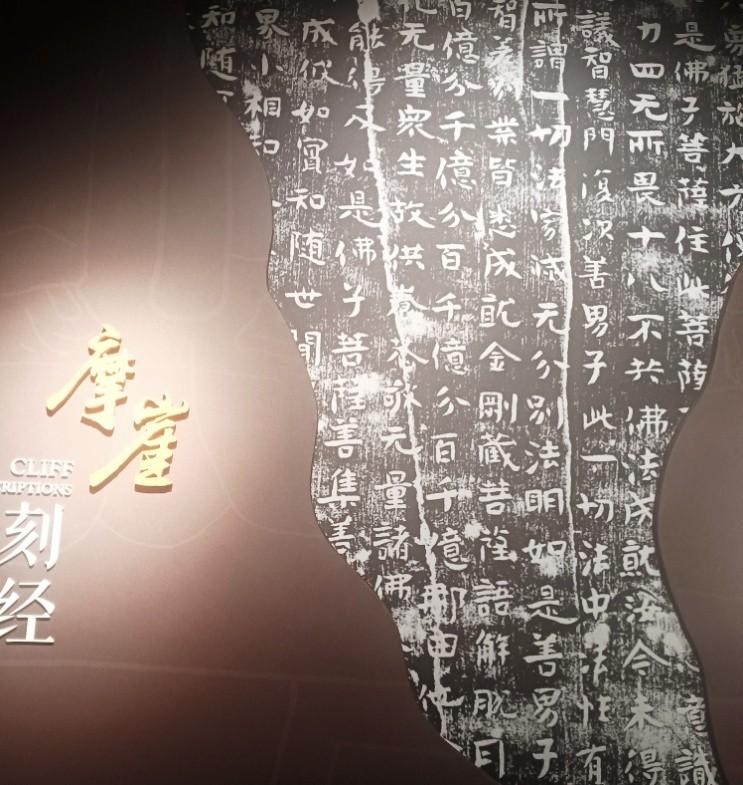 是佛子菩薩住此菩薩
力四无所畏十八不共佛法成就汝今未得
議智慧門復次善男子此一切法中法性有
所謂一切法寂滅无分別法明如是善男子
業皆悉成就金剛藏菩薩語解脫月
百億分千億分百千億分百千億那由他
化无量衆生故供養恭敬无量諸佛
如是佛子菩薩善集善
如實知随世間
界小相知
知随
摩崖
CLIFF
RIPTIONS
刻经